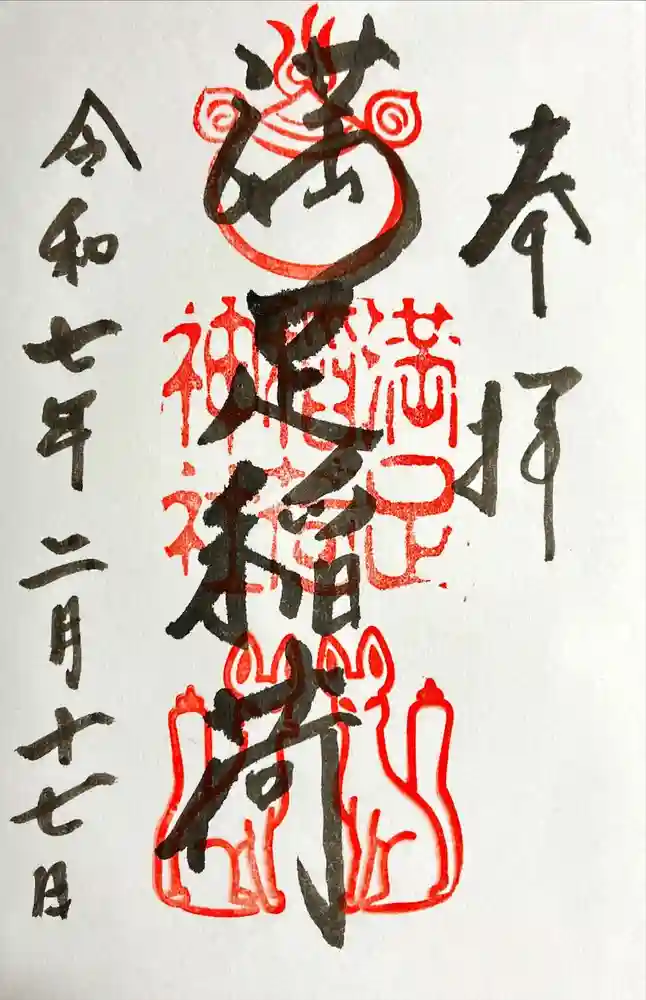 奉拝
満足稲荷
満足
稲荷
神社
令和七年二月十七日